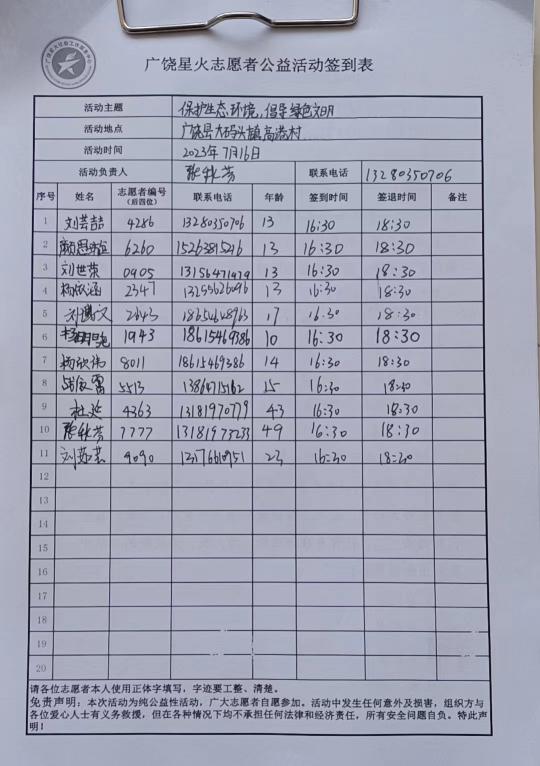 广饶星火志愿者公益活动签到表
活动主题 保护生态环境,倡导绿色文明
活动地点 广饶县大码头镇高港村
活动时间 2023年7月16日
活动负责人 张秋芳 联系电话 13280350706
序号 姓名 志愿者编号（后四位） 联系电话 年龄 签到时间 签退时间 备注
1 刘芸喆 4286 13280350706 13 16:30 18:30
2 颜思 6260 15263815246 13 16:30 18:30
3 刘世荣 0905 13156471479 13 16:30 18:30
4 杨欣涵 2347 13255626096 13 16:30 18:30
5 刘 文 2643 17 16:30 18:30
6 1943 18615469386 10 16:30 18:30
7 杨欣伟 8011 18615469386 14 16:30 18:30
8 5513 15 16:30 18:30
9 杜 4363 13181970779 43 16:30 18:30
10 张秋芳 7777 13181973233 49 16:30 18:30
11 刘茹芸 9090 23 16:30 18:30
12
13
14
15
16
17
18
19
20
请各位志愿者本人使用正体字填写，字迹要工整、清楚。
免责声明：本次活动为纯公益性活动，广大志愿者自愿参加。活动中发生任何意外及损害，组织方与
各位爱心人士有义务救援，但在各种情况下均不承担任何法律和经济责任，所有安全问题自负。特此声
明！